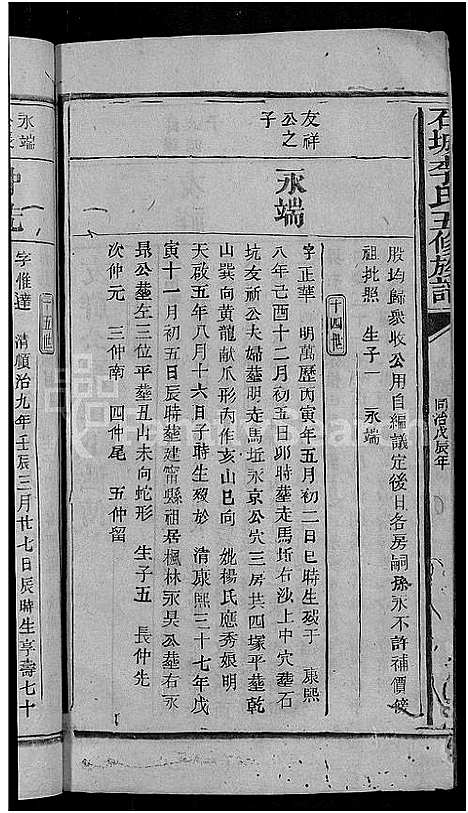 石城李氏五修族譜
同治戊辰年
股均歸眾收公用自編議定後日各房嗣孫永不許補價候
祖批照　生子一　永端
十四世
友祥
公之
子
永端
字正華　明萬歷丙寅年五月初二日巳時生歿于　康熙
八年己酉十二月初五日卯時葬走馬坵右沙上中穴葬石
坑友祈公夫婦墓明走馬坵永京公穴三房共四塚平葬乾
山巽向黃龍獻爪形丙作亥山巳向　妣楊氏應秀娘明
天啟五年八月十六日子時生歿於　清康熙三十七年戊
寅十一月初五日辰時葬建甯縣祖居楓林永昊公墓右永
昂公墓左三位平葬丑山未向蛇形　生子五　長仲先
次仲元　三仲南　四仲尾　五仲留
十五世
永端
字惟達　清順治九年壬辰三月廿七日辰時生享壽七十